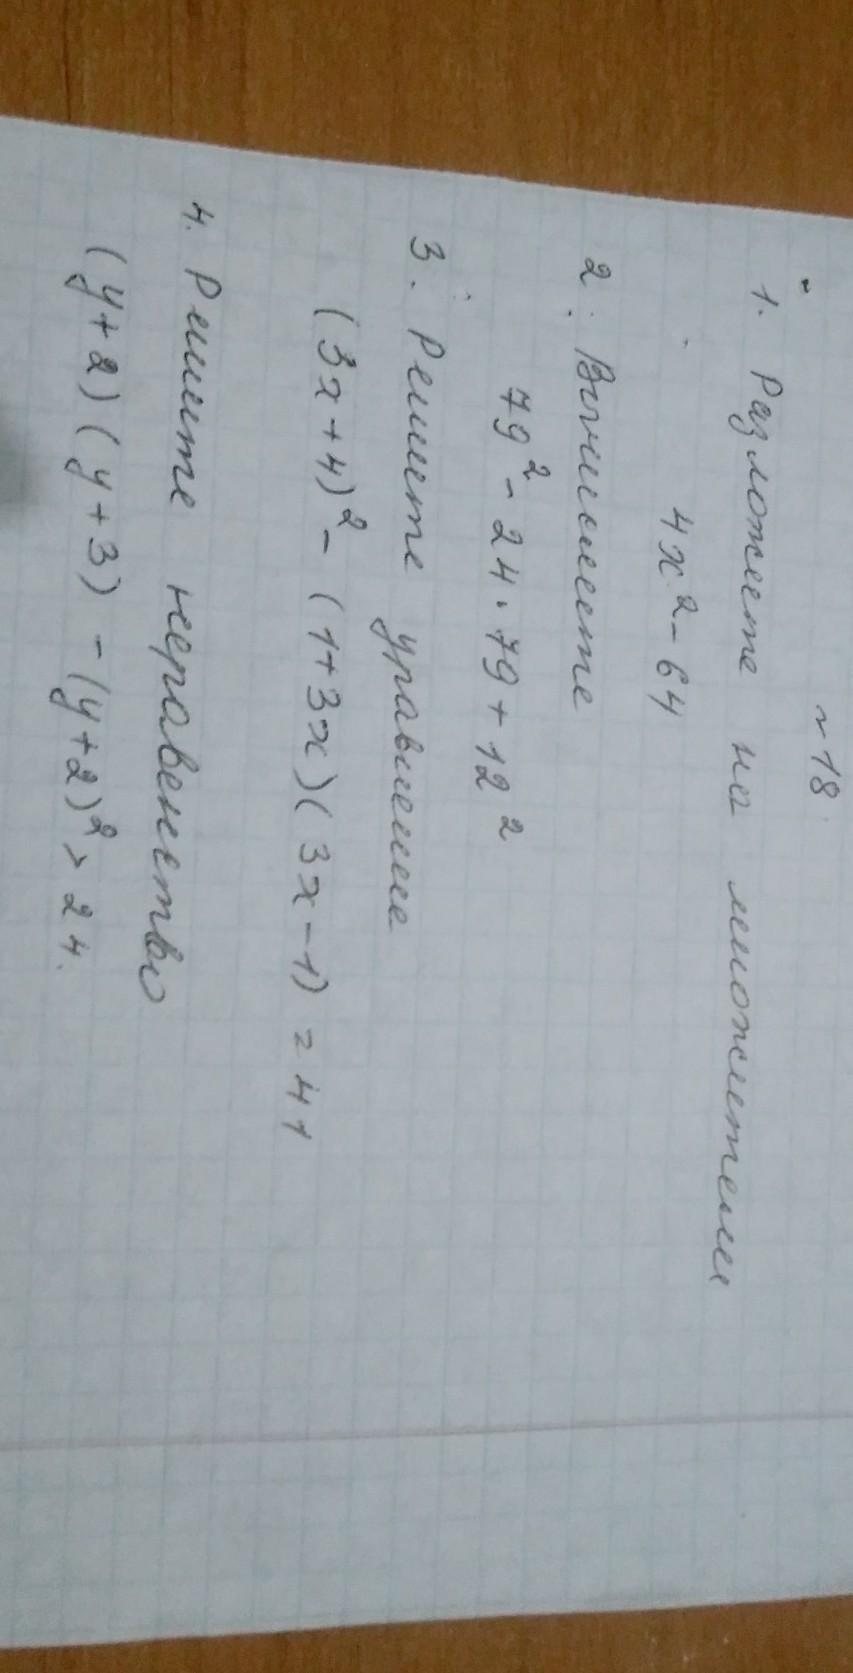 ~18.
1. Разложите на множители
4x² - 64
2. Вычислите
79² - 24 · 79 + 12²
3. Решите уравнение
(3x + 4)² - (1 + 3x)(3x - 1) = 41
4. Решите неравенство
(y + 2)(y + 3) - (y + 2)² > 24.